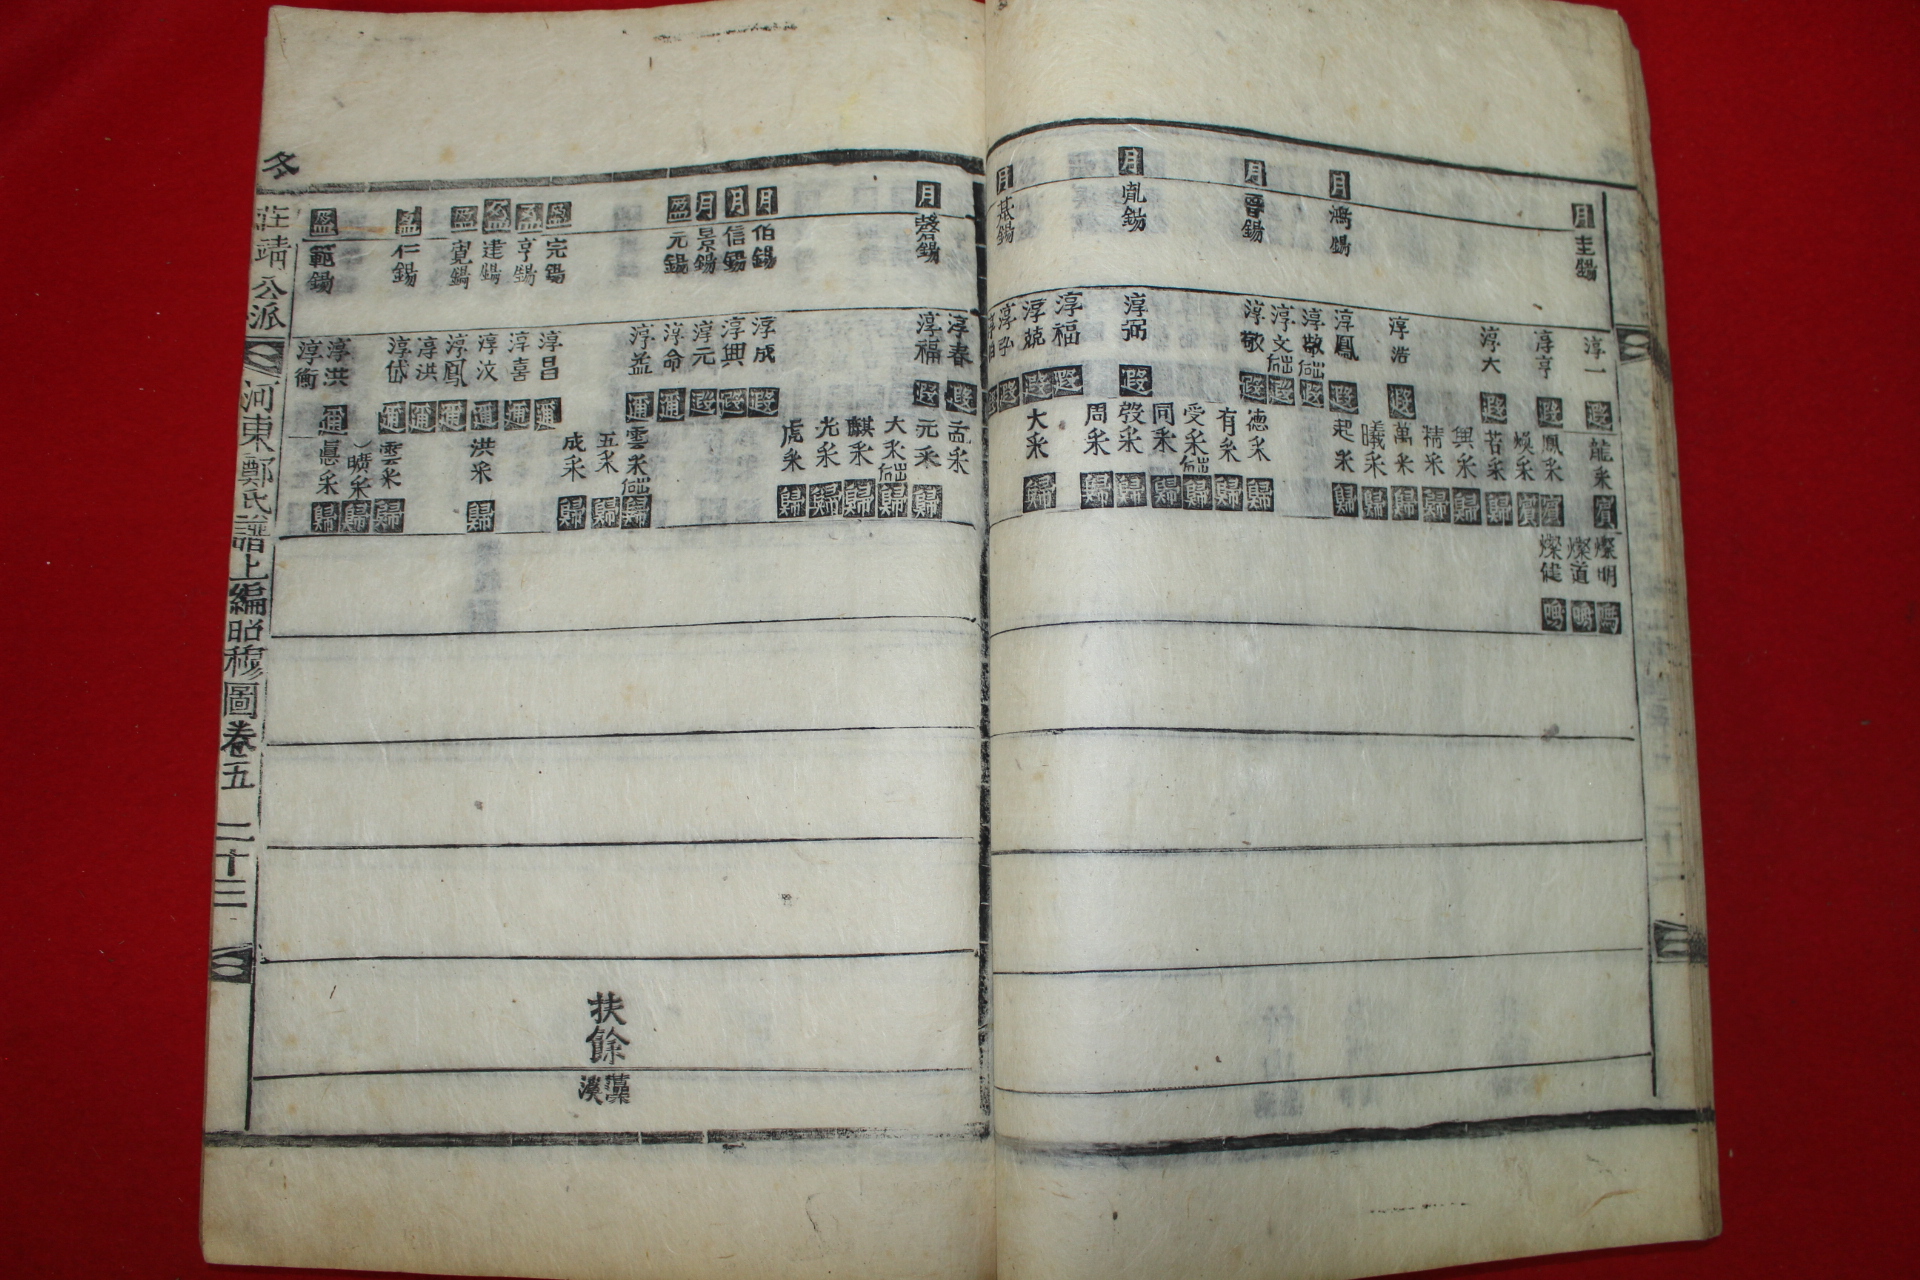 月 圭錫
月 鴻錫
月 晉錫
月 胤錫
月 基錫
淳一 遐
淳亨 遐
淳大 遐
淳浩 遐
淳鳳 遐
淳敬 出 遐
淳文 出 遐
淳敬 遐
淳弼 遐
淳福 遐
淳兢 遐
淳弘 遐
龍采 賓
鳳采 賓
煥采 賓
若采 歸
興采 歸
精采 歸
萬采 歸
曦采 歸
起采 歸
德采 歸
有采 歸
受采 出 歸
同采 歸
發采 歸
周采 歸
大采 歸
燦明 鳴
燦道 鳴
燦健 鳴
月 磬錫
月 伯錫
月 信錫
月 景錫
盈 元錫
盈 完錫
盈 亨錫
盈 建錫
盈 寬錫
盈 仁錫
盈 範錫
淳春 遐
淳福 遐
淳成 遐
淳興 遐
淳元 遐
淳命 邇
淳益 邇
淳昌 邇
淳喜 邇
淳汶 邇
淳鳳 邇
淳洪 邇
淳岱 邇
淳洪 邇
淳衡
孟采
元采 歸
大采 出 歸
麒采 歸
光采 歸
虎采 歸
雲采 出 歸
五采 歸
成采 歸
洪采 歸
雲采 歸
曠采 歸
眞采 歸
扶餘
藻溪
冬
莊靖公派 河東鄭氏譜上編昭穆圖卷五 二十三